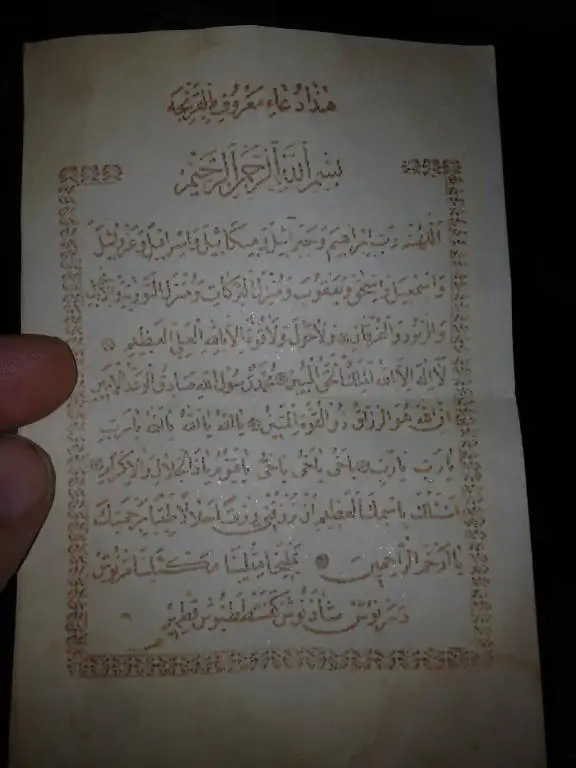 هذا دعاء معروف بالقرنجه
بسم الله الرحمن الرحيم
اللهم رب ابراهيم وجبرائيل وميكائيل واسرافيل وعزرائيل
واسمعيل واسحق ويعقوب ومنزل البركات ومنزل التورية والانجيل
والزبور والفرقان ولا حول ولا قوة الا بالله العلي العظيم
لا اله الا الله الملك الحق المبين محمد رسول الله صادق الوعد الامين
ان الله هو الرزاق ذو القوة المتين يا الله يا الله يا الله يا رب
يا رب يا رب يا حي يا حي يا حي يا قيوم يا ذا الجلال والاكرام
اسئلك باسمك العظيم ان ترزقني رزقا حلالا طيبا برحمتك
يا ارحم الراحمين يمليخا مثلينا مكثلينا مرنوش
دبرنوش شاذنوش كفشططيوش قطمير